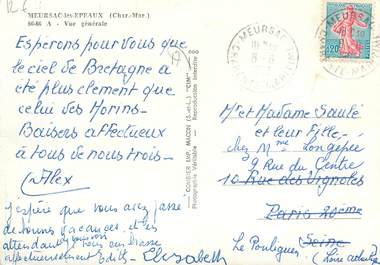 MEURSAC-les-EPEAUX (Char.-Mar.)
86-86 A - Vue générale
Espérons pour vous que
le ciel de Bretagne a
été plus clement que
celui des Morins-
Baisers affectueux
à tous de nous trois-
Alex
j'espère que vous avez passé
de bonnes vacances. et en
attendant
affectueusement Edith - Elisabeth
COMBIER IMP. MACON (S.-et-L.) "CIM"
Photographie Véritable - Reproduction Interdite
MEURSAC
CHARENTE-MARITIME
0,20
Mr et Madame Saulé
et leur Fille
chez Mme Longépée
9 Rue du Centre
10 Rue des Vignoles
Paris 20ème
Le Pouliguen Seine
(Loire